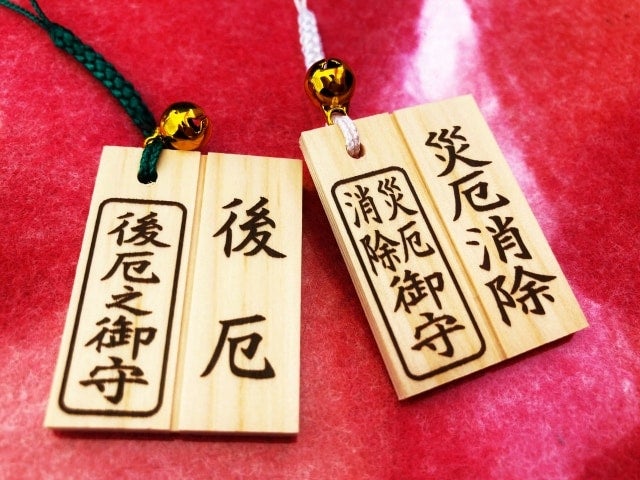 後厄
後厄之御守
災厄消除
災厄消除御守